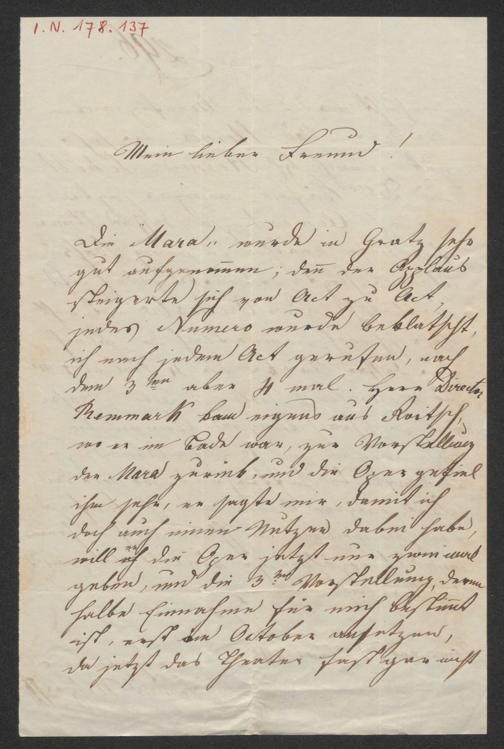 I.N. 178.137
Mein lieber Freund!
Die „Mara" wurde in Gratz sehr
gut aufgenommen; deñ der Applaus
steigerte sich von Act zu Act,
jedes Numero wurde beklatscht,
ich nach jedem Act gerufen, nach
dem 3ten aber 4 mal. Herr Director
Remmark kam eigens aus Roitsch,
wo er im Bade war, zur Vorstellung
der Mara zurük, und die Oper gefiel
ihm sehr, er sagte mir, damit ich
doch auch einen Nutzen dabei habe,
will er die Oper jetzt nur zwei mal
geben, und die 3te Vorstellung, deren
halbe Einnahme für mich bestimt
ist, erst im October ansetzen,
da jetzt das Theater fast gar nicht